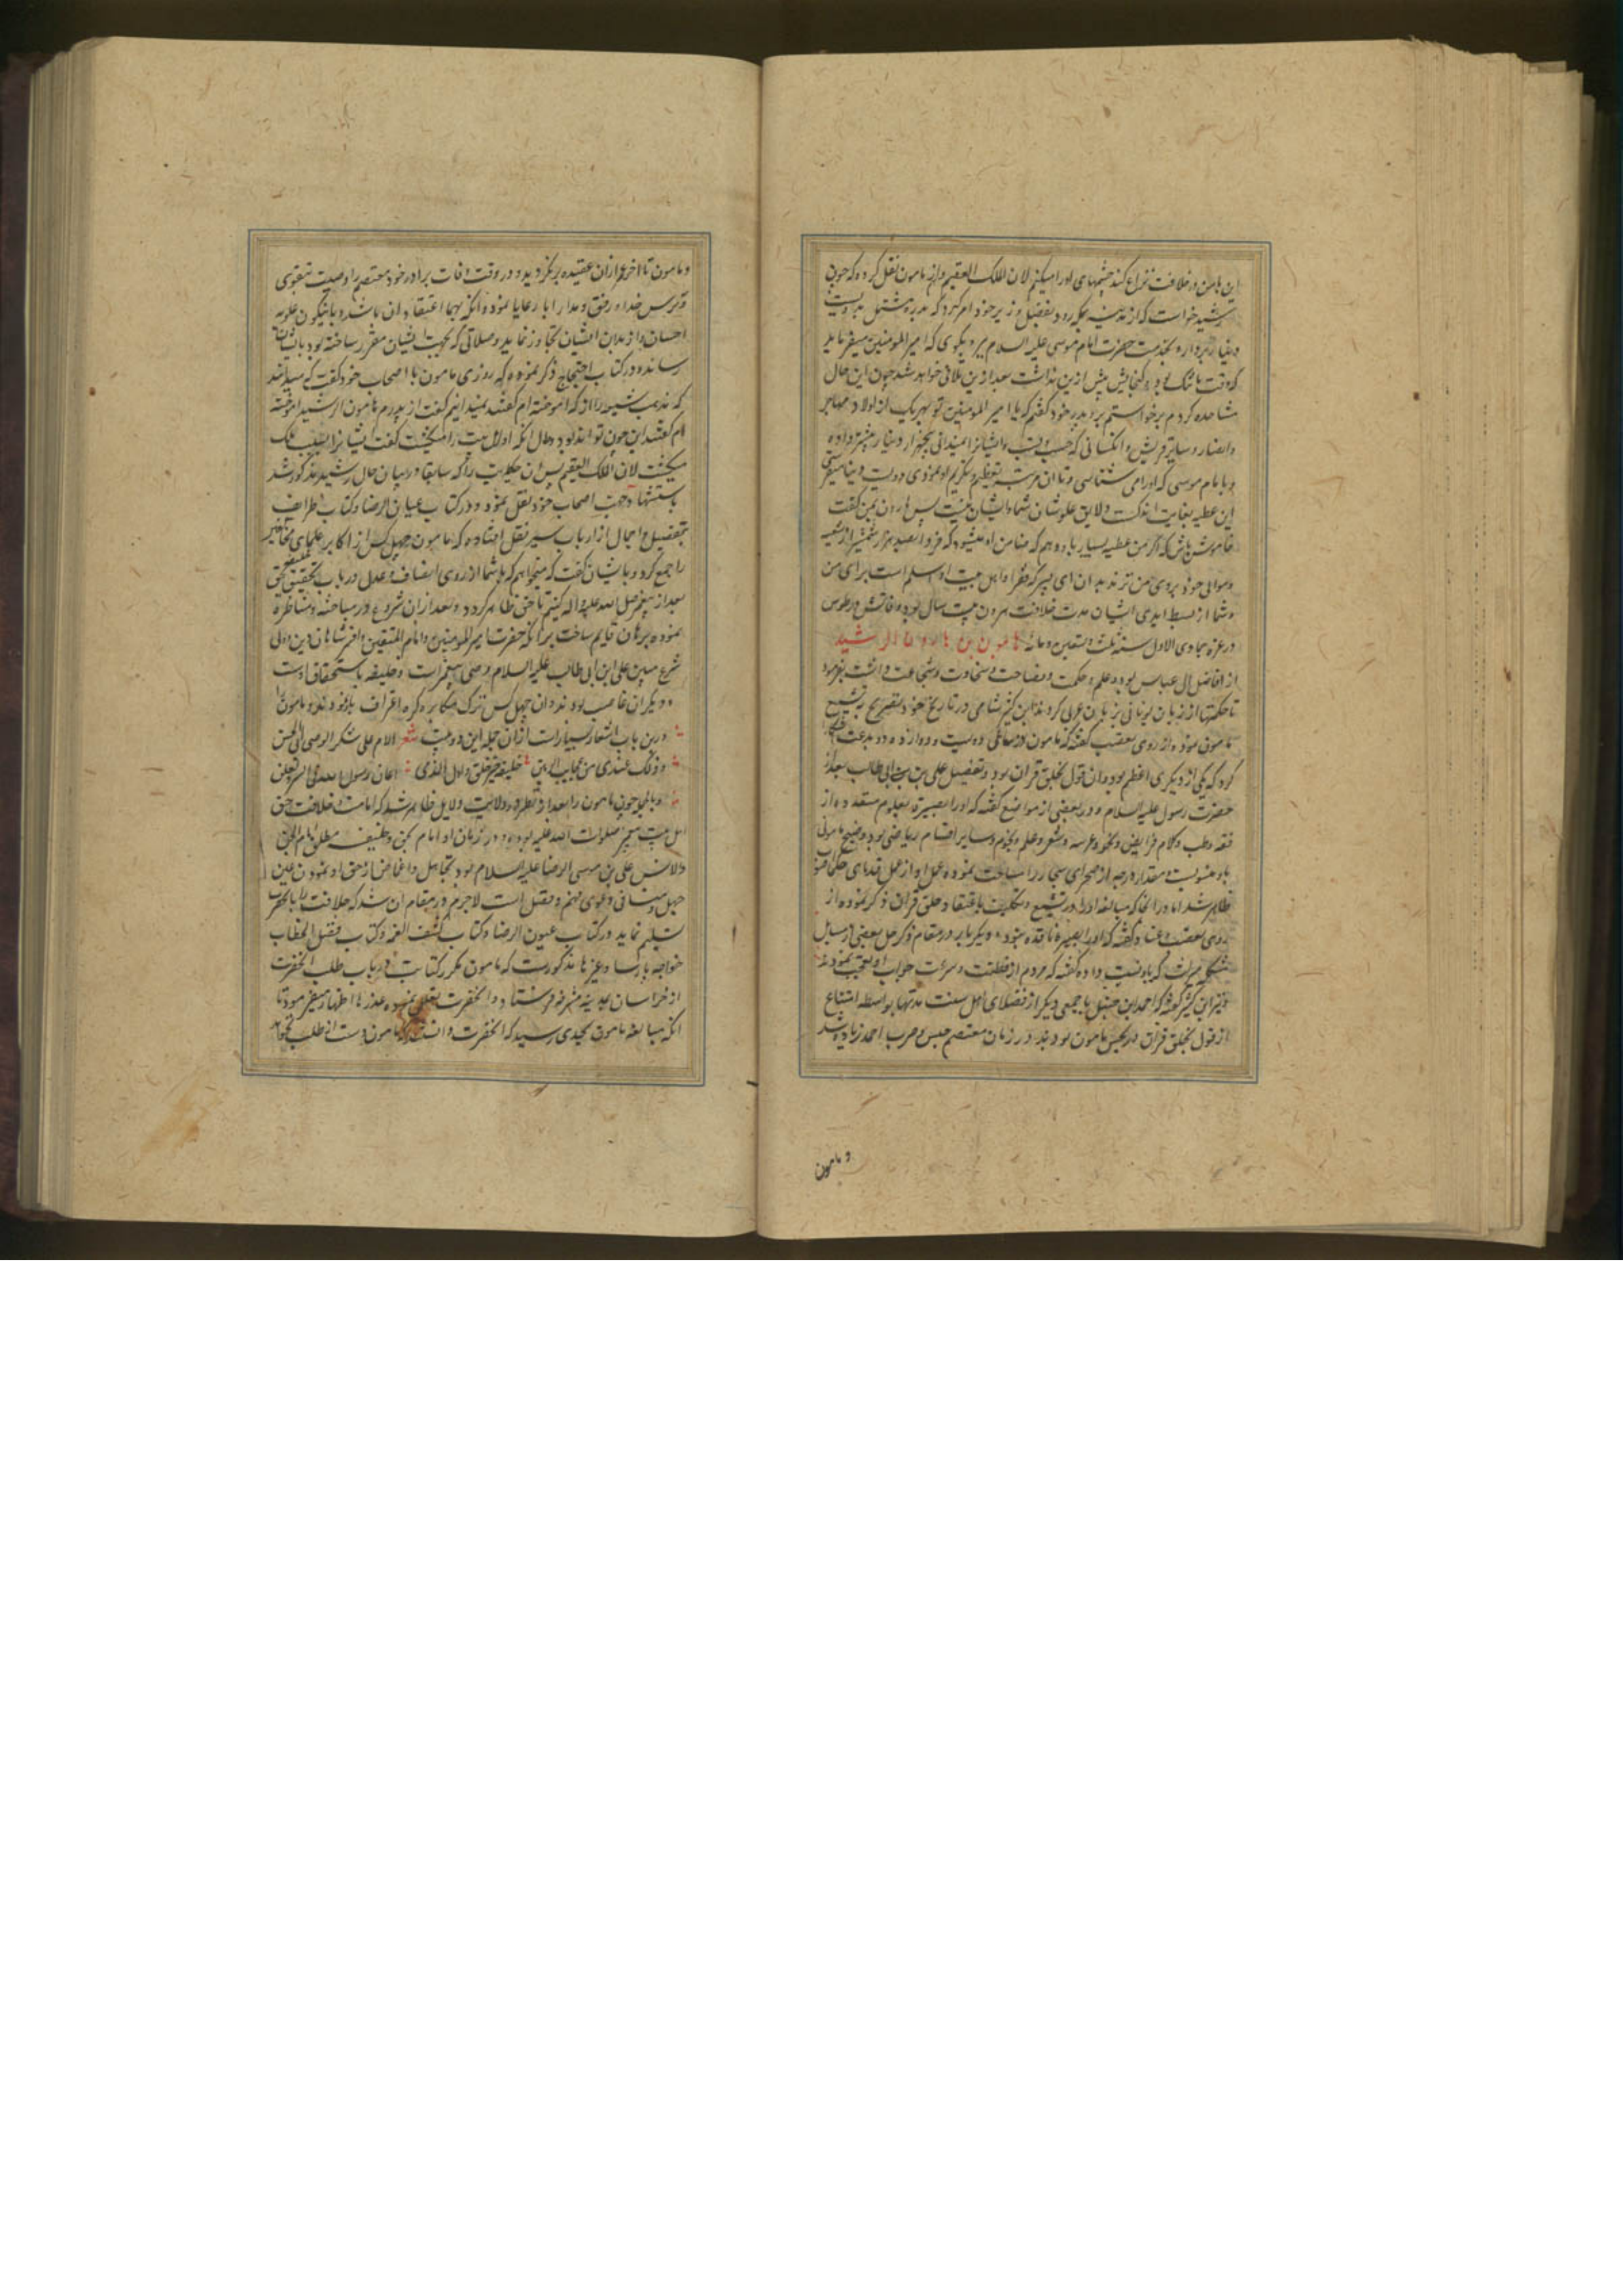 این با من در خلافت نزاع کند چشمهای او را میکنم لان الملک العقیم و از مامون نقل کرده که چون
رشید خواست که از مدینه بمکه رود بفضل وزیر خود امر کرد که بدره مشتمل بدویست
دینار بردارد و بخدمت حضرت امام موسی علیه السلام برد و بگوی که امیر المومنین میفرماید
که وقت ما تنک بود و گنجایش بیش ازین نداشت بعد ازین تلافی خواهد شد چون این حال
مشاهده کردم برخواستم و نزد پدر خود گفتم که یا امیر المومنین تو بهریک از اولاد مهاجر
و انصار و سایر قریش و انکسانی که حسب و نسب ایشانرا نمیدانی پنجهزار دینار بیشتر داده
و با امام موسی که او را می شناسی و تا ان مرتبه تعظیم و تکریم او نمودی دویست دینار میفرستی
این عطیه بغایت اندکست و لایق علو شان شما و ایشان نیست پس هارون بمن گفت
خاموش باش که اگر من عطیه بسیار باو دهم که ضامن او میشود که فردا بصد هزار شمشیر از شیعه
و موالی خود بروی من نزند بدان ای پسر که فقر او اهل بیت او اسلم است برای من
و شما از بسط ایدی ایشان مدت خلافت هرون بیست سال بود و فاتش در طوس
در غره جمادی الاول سنه ثلث و تسعین و مائه مامون بن هارون الرشید
از افاضل ال عباس بود و علم و حکمت و فصاحت و سخاوت و شجاعت داشت بفرمود
تا حکمتها از زبان یونانی بزبان عربی کردند ابن کثیر شامی در تاریخ خود تصریح بتشیع
مامون نموده و از روی تعصب گفته که مامون در سال دویست و دوازده دو بدعت
کرد که یکی از دیگری اعظم بود و ان قول بخلق قران بود و تفضیل علی بن ابی طالب بعد از
حضرت رسول علیه السلام و در بعضی از مواضع گفته که او را بصیرة بعلوم متعدده از
فقه و طب و کلام و فرایض و نحو و عربیه و شعر و علم نجوم و سایر اقسام ریاضی بود و زیج مامونی
باو منسوبست و مقدار درجه از صحرای سنجار را مساحت نموده عمل او از عمل قدمای حکما
ظاهر شد اما در انجا که مبالغه او را در تشیع و تکلیف باعتقاد خلق قران ذکر نموده از
روی تعصب و عناد گفته که او را بصیرة نافذه نبود و دیگر بار در مقام ذکر حل بعضی از مسایل
مشکله میراث که باو نسبت داده گفته که مردم از فطنت و سرعت جواب او تعجب نمودند
و نیز ابن کثیر گفته که احمد ابن حنبل با جمعی دیگر از فضلای اهل سنت مدتها بواسطه امتناع
از قول بخلق قران در حبس مامون بودند در زمان معتصم حبس و ضرب احمد زیاده شد
و مامون
و مامون تا اخر عمر ازان عقیده برنگردید و در وقت وفات برادر خود معتصم را وصیت بتقوی
و ترس خدا و رفق و مدارا با رعایا نمود و انکه بهما اعتقاد ان باشد و با نیکون علویه
احسان و از بدان ایشان تجاوز نماید و صلاتی که بجهت ایشان مقرر ساخته بود بایشان
رسانده و در کتاب احتجاج ذکر نموده که روزی مامون با اصحاب خود گفت که میدانید
که مذهب شیعه را از که اموخته ام گفتند نمیدانیم گفت از پدرم هارون الرشید اموخته
ام گفتند این چون تواند بود و حال انکه او اهل بیت را میکشت گفت ایشانرا بسبب ملک
میکشت لان الملک العقیم پس ان حکایت را که سابقا در بیان حال رشید مذکور شد
باستشهاد جهت اصحاب خود نقل نمود و در کتاب عیون الرضا و کتاب طرایف
بتفصیل و اجمال از ارباب سیر نقل افتاده که مامون چهل کس از اکابر علمای مخالفین
را جمع کرد و بایشان گفت که میخواهم که با شما از روی انصاف و عدل در باب تحقیق خلیفه بحق
بعد از پیغمبر صلی الله علیه و اله کنیم تا حق ظاهر گردد و بعد ازان شروع در مباحثه و مناظره
نموده برهان قایم ساخت بر انکه حضرت امیر المومنین و امام المتقین و افسر شاهان دین والی
شرع مبین علی ابن ابی طالب علیه السلام وصی پیغمبر است و خلیفه باستحقاق اوست
و دیگران غاصب بودند و ان چهل کس ترک مکابره کرده اعتراف باو نمودند و مامون را
درین باب اشعار بسیارست ازان جمله این دو بیت شعر الام علی شکر الوصی ابی الحسن
و ذلک عندی من عجایب الزمن خلیفة خیر خلق و اول الذی اعان رسول الله فی السر و العلن
و بالجمله چون مامون را بعد از نظر در دلالت دلایل ظاهر شد که امامت و خلافت حق
اهل بیت پیغمبر صلوات الله علیه بوده و در زمان او امام بحق و خلیفه مطلق امام الجن
والانس علی بن موسی الرضا علیه السلام بود تجاهل و اغماض از حق او نمودن عین
جهل و منافی دعوی فهم و عقل است لاجرم در مقام ان شد که خلافت را با حضرت
تسلیم نماید در کتاب عیون الرضا و کتاب کشف الغمه و کتاب فصل الخطاب
خواجه پارسا و غیرها مذکورست که مامون مکرر کتابت در باب طلب انحضرت
از خراسان بمدینه مشرفه فرستاد و انحضرت تعلل نموده عذرها اظهار میفرمود تا
انکه مبالغه مامون بجدی رسید که انحضرت دانستند که مامون دست از طلب نخواهد